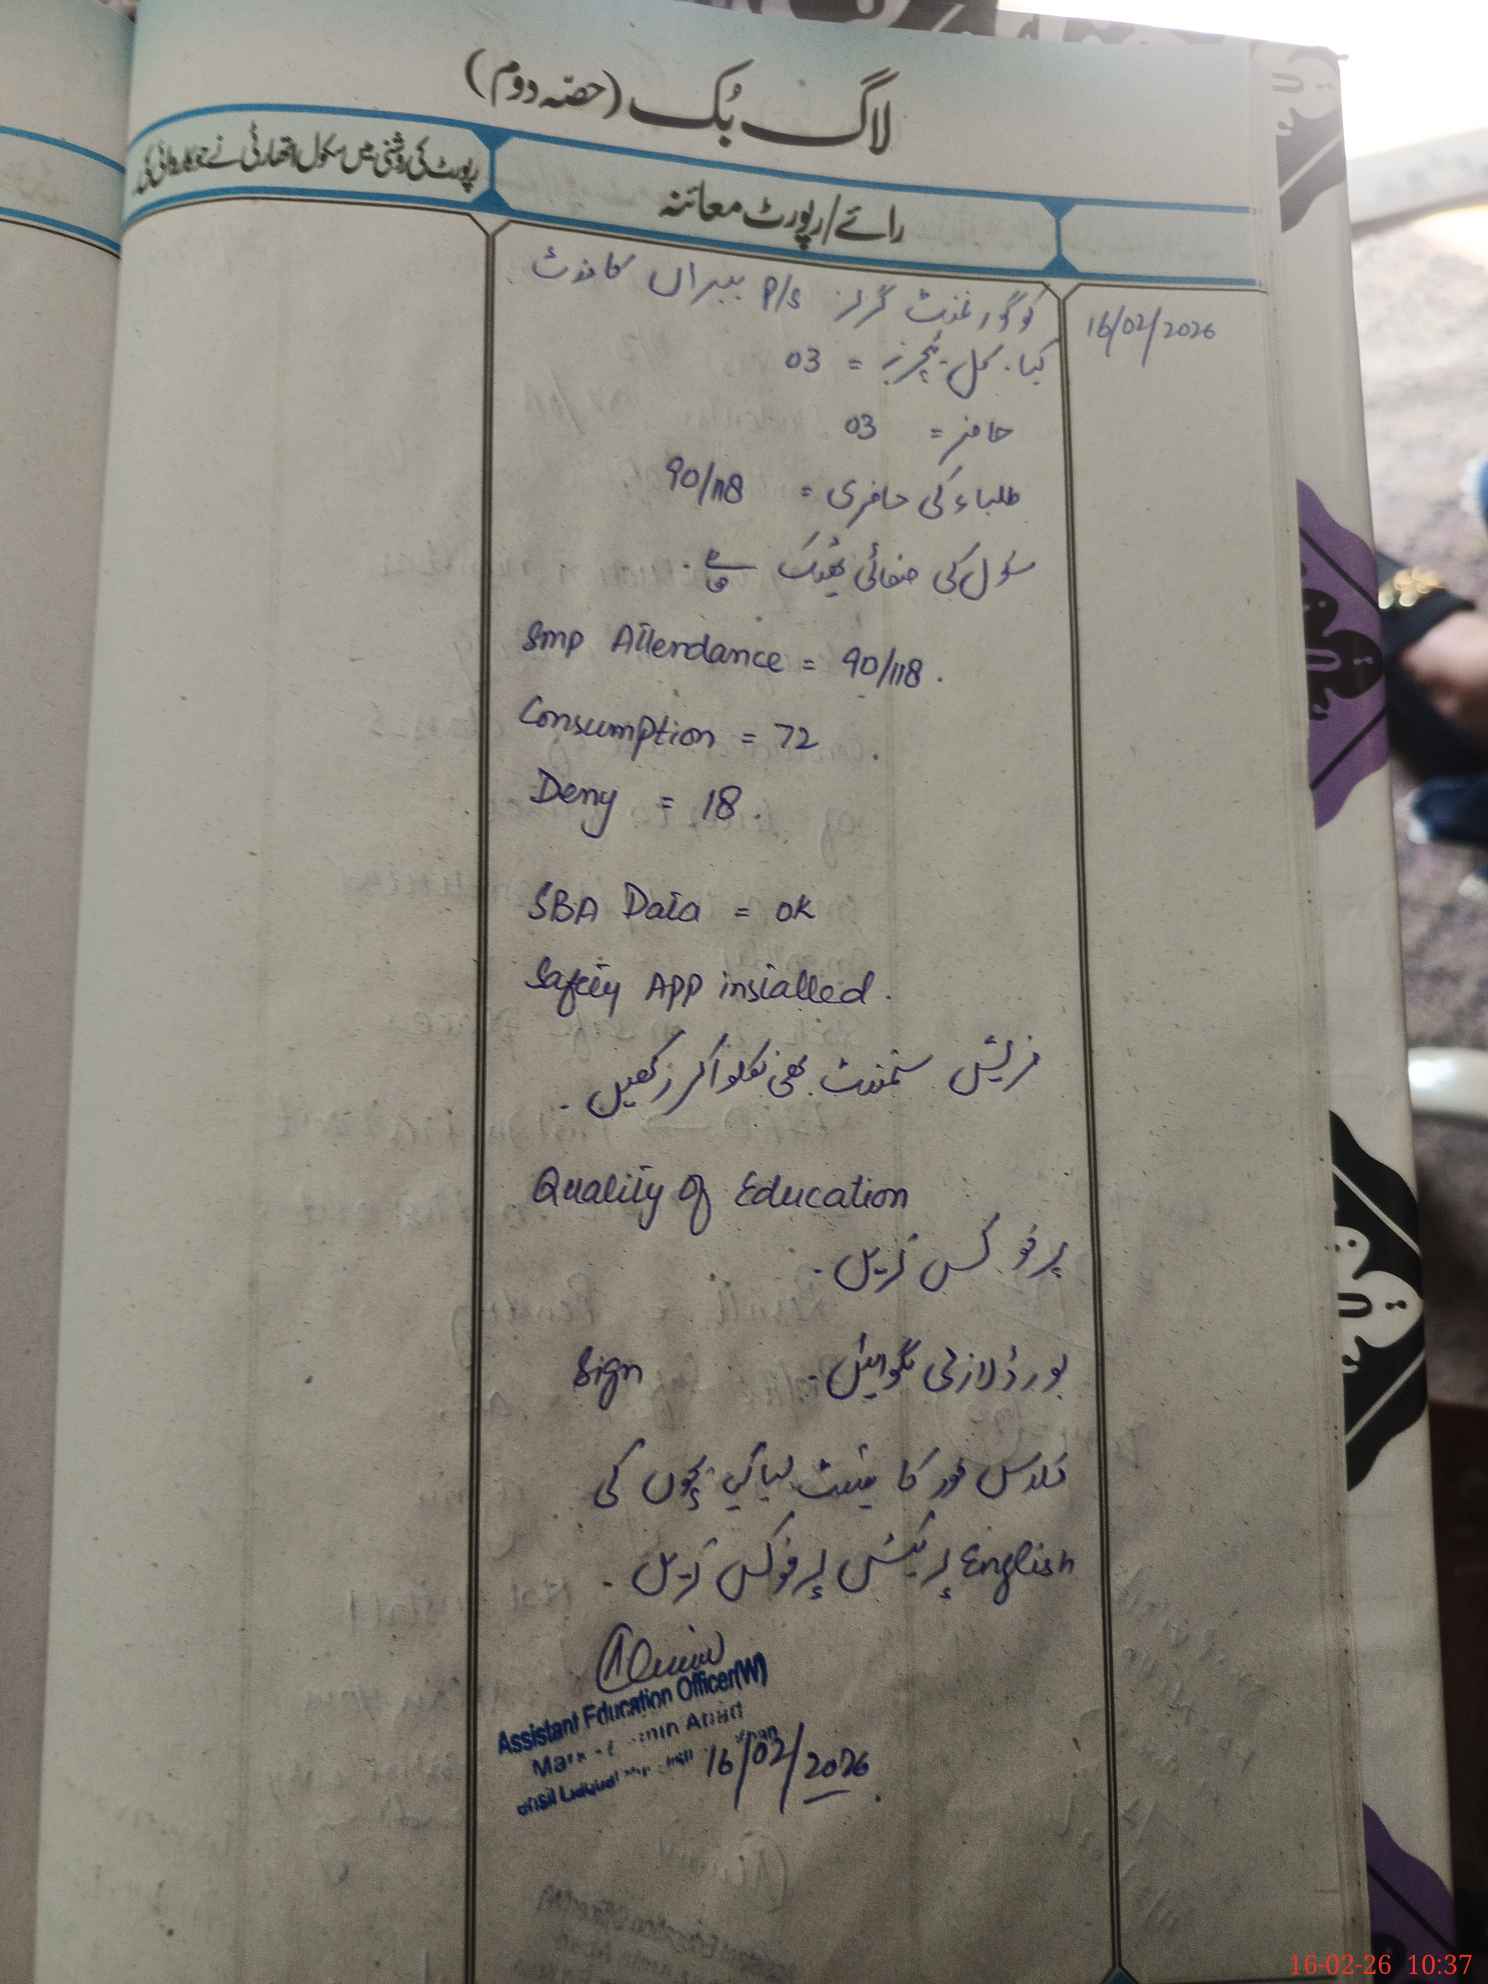 لاگ بُک (حصّہ دوم)
رائے/رپورٹ معائنہ
رپورٹ کی روشنی میں سکول اتھارٹی نے جو کاروائی کی
16/02/2026
کو گورنمنٹ گرلز P/S کا وزٹ
کیا۔ کل ٹیچرز = 03
حاضر = 03
طلباء کی حاضری = 90/118
سکول کی صفائی ٹھیک ہے۔
Smp Attendance = 90/118.
Consumption = 72.
Deny = 18.
SBA Data = ok
Safety APP installed.
فریش سٹمنٹ بھی نکلوا کر رکھیں۔
Quality of Education
پر فوکس کریں۔
Sign بورڈ لازمی لگوائیں۔
کلاس فور کا ٹیسٹ لیا گیا۔ بچوں کی
English پریکٹس پر فوکس کریں۔
Assistant Education Officer(W)
16/02/2026.
16-02-26 10:37